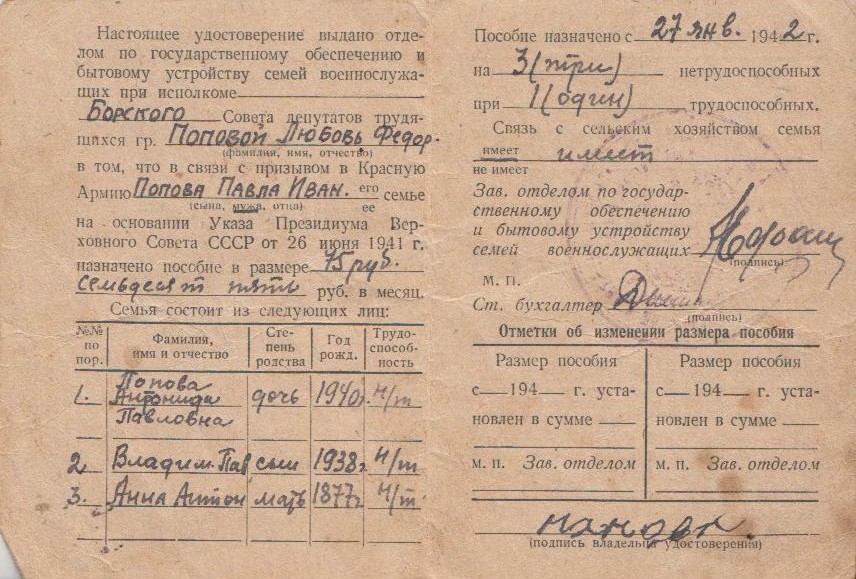 Настоящее удостоверение выдано отде-
лом по государственному обеспечению и
бытовому устройству семей военнослужа-
щих при исполкоме
Борского Совета депутатов трудя-
щихся гр. Поповой Любовь Федор.
(фамилия, имя, отчество)
в том, что в связи с призывом в Красную
Армию Попова Павла Иван. его семье
ее
(сына, мужа, отца)
на основании Указа Президиума Вер-
ховного Совета СССР от 26 июня 1941 г.
назначено пособие в размере 75 руб.
семьдесят пять руб. в месяц.
Семья состоит из следующих лиц:
№№ по пор. Фамилия, имя и отчество Сте-пень родства Год рожд. Трудо-способ-ность
1. Попова Антонида Павловна дочь 1940г. н/т
2 Владим. Пав сын 1938г н/т
3. Анна Антон мать 1877г н/т
Пособие назначено с 27 янв. 1942 г.
на 3 (три) нетрудоспособных
при 1 (один) трудоспособных.
Связь с сельским хозяйством семья
имеет имеет
не имеет
Зав. отделом по государ-
ственному обеспечению
и бытовому устройству
семей военнослужащих
(подпись)
М. П.
Ст. бухгалтер
(подпись)
Отметки об изменении размера пособия
Размер пособия
с 194 г. уста-
новлен в сумме
м. п. Зав. отделом
Размер пособия
с 194 г. уста-
новлен в сумме
м. п. Зав. отделом
(подпись владельца удостоверения)